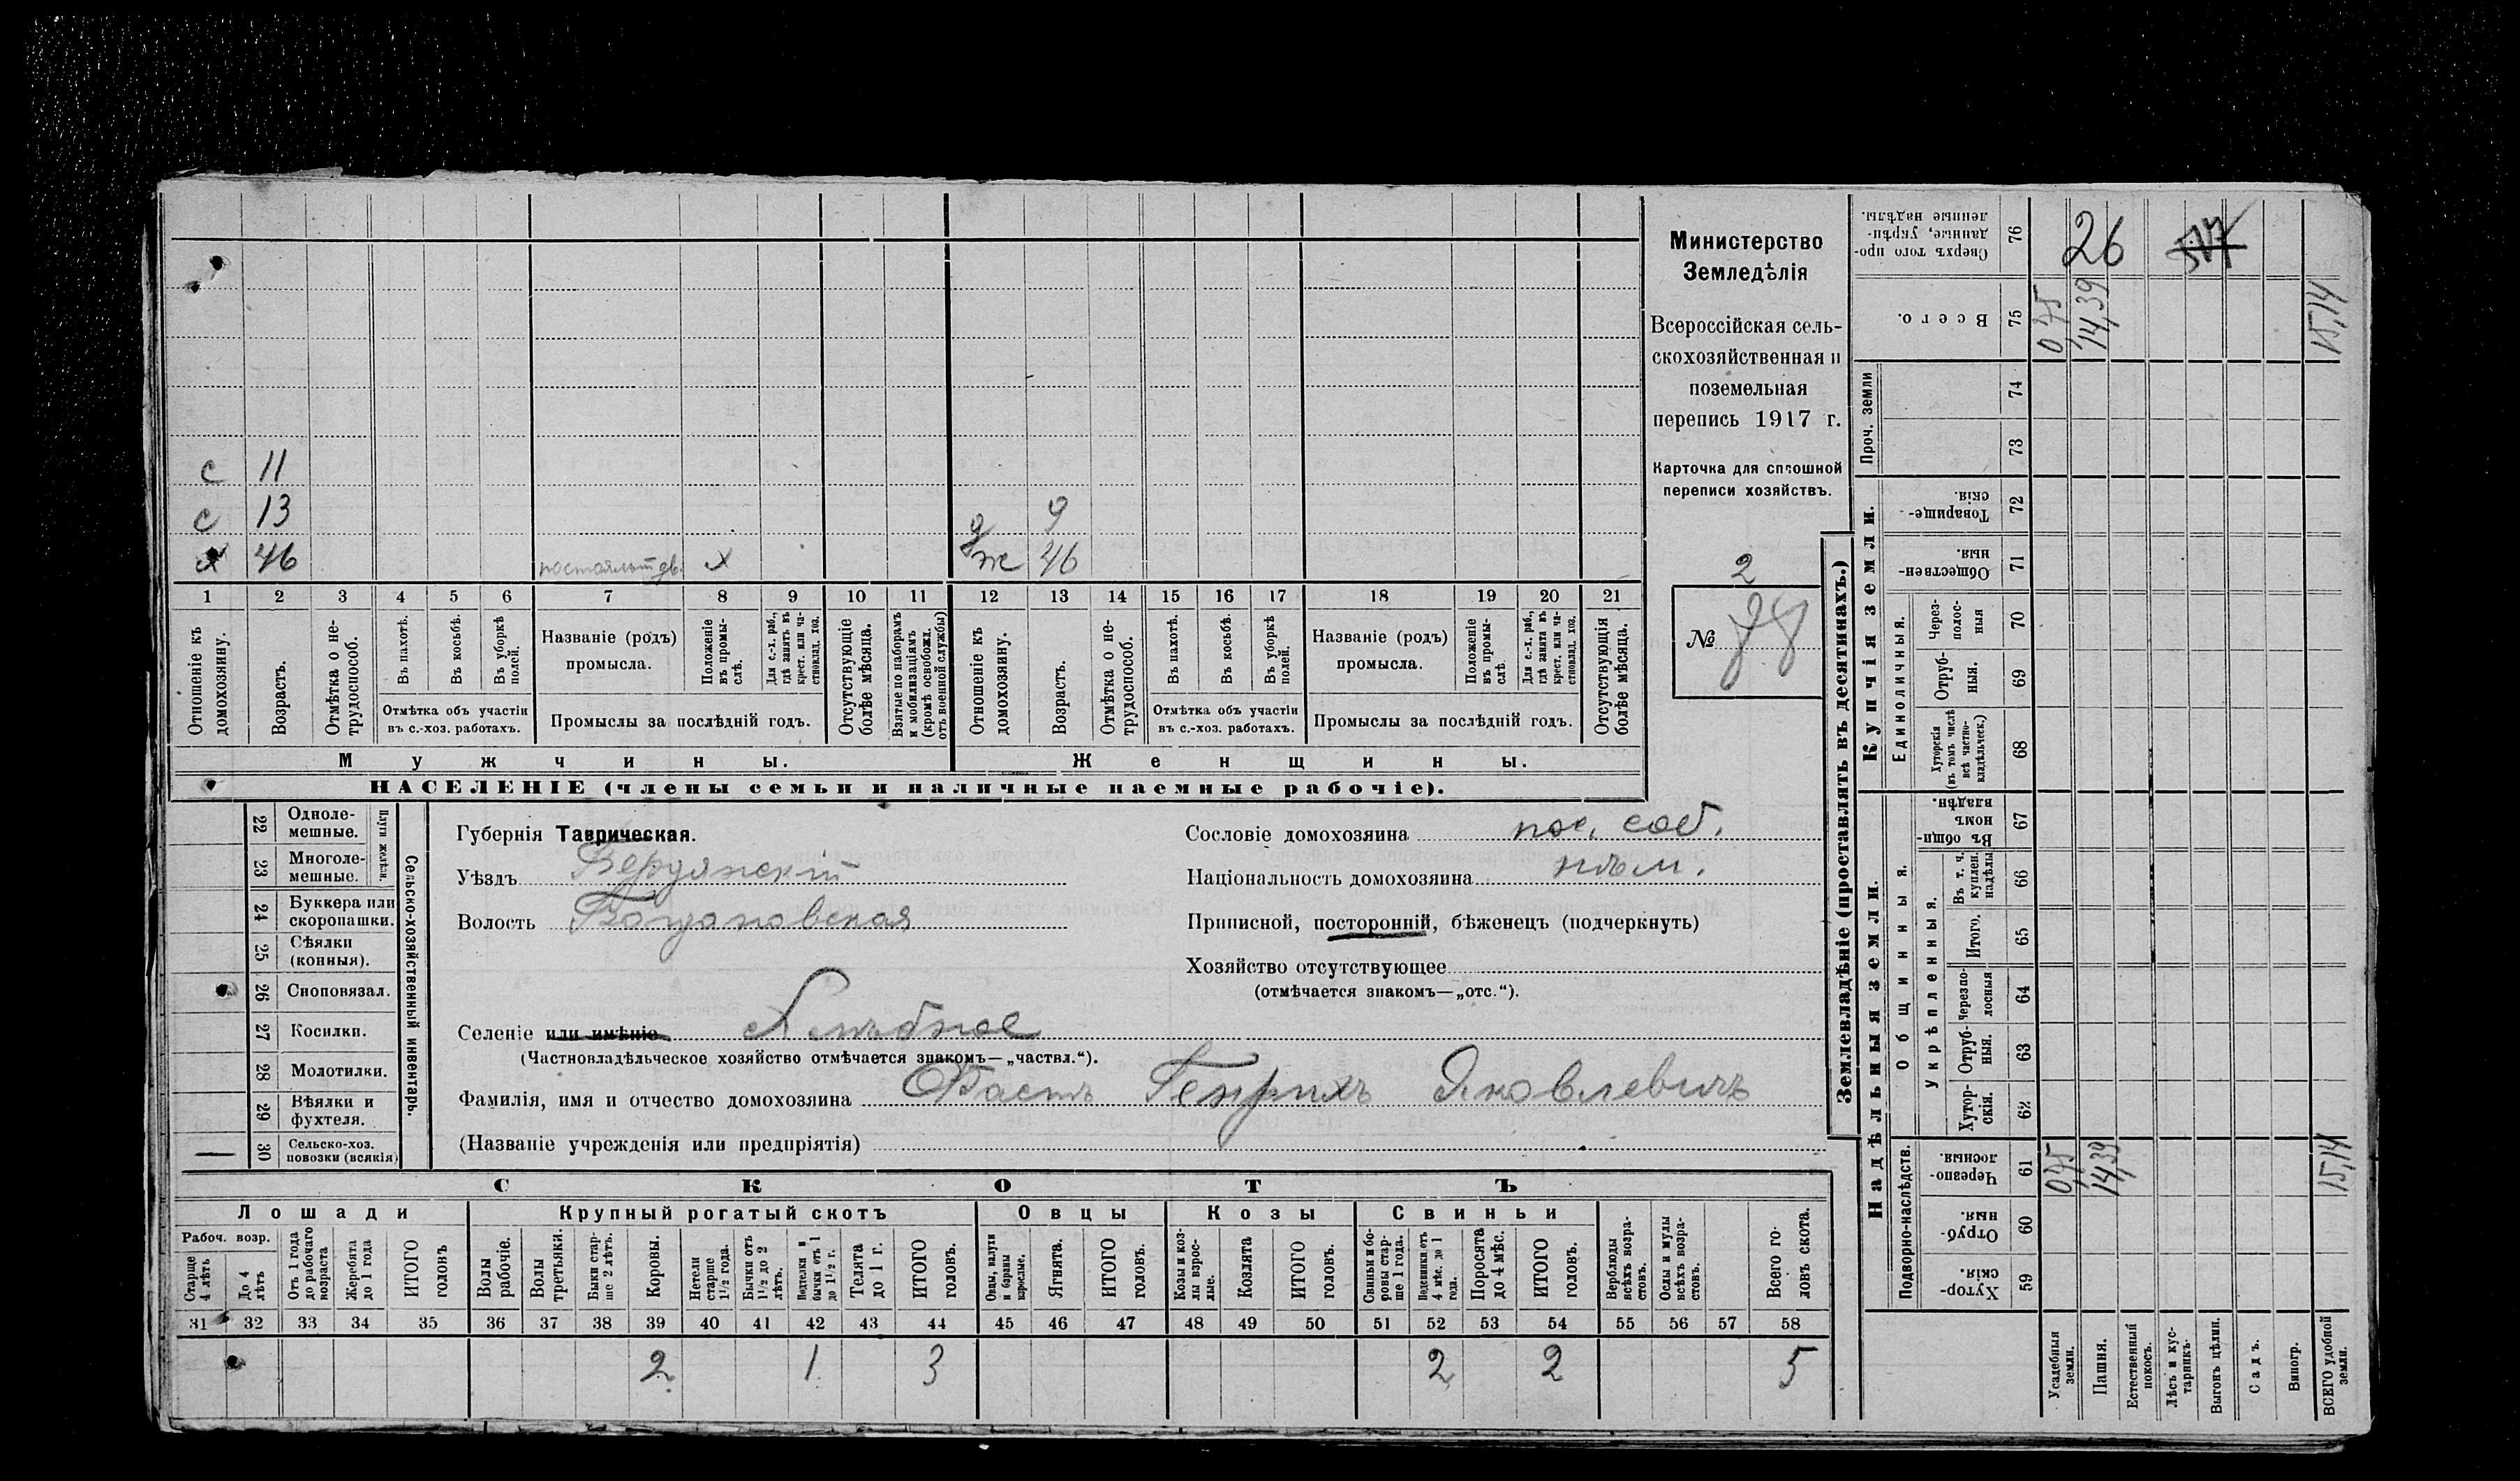 с 11
с 13 д 9
х 46 х ж 46
1 2 3 4 5 6 7 8 9 10 11 12 13 14 15 16 17 18 19 20 21
Отношеніе къ домохозяину.
Возрастъ.
Отмѣтка о не-
трудоспособ.
Въ пахотѣ.
Въ косьбѣ.
Въ уборкѣ полей.
Отмѣтка объ участіи
въ с.-хоз. работахъ.
Названіе (родъ)
промысла.
Положеніе въ промы-
слѣ.
Для с.-х. раб., гдѣ занятъ въ крест. или ча-
стновлад. хоз.
Промыслы за послѣдній годъ.
Отсутствующіе болѣе мѣсяца.
Взятые по наборамъ и мобилизаціямъ (кромѣ освобожд. отъ военной службы)
Отношеніе къ домохозяину.
Возрастъ.
Отмѣтка о не-
трудоспособ.
Въ пахотѣ.
Въ косьбѣ.
Въ уборкѣ полей.
Отмѣтка объ участіи
въ с.-хоз. работахъ.
Названіе (родъ)
промысла.
Положеніе въ промы-
слѣ.
Для с.-х. раб., гдѣ занята въ крест. или ча-
стновлад. хоз.
Промыслы за послѣдній годъ.
Отсутствующія болѣе мѣсяца.
Мужчины. Женщины.
НАСЕЛЕНІЕ (члены семьи и наличные наемные рабочіе).
Министерство
Земледѣлія
Всероссійская сель-
скохозяйственная и
поземельная
перепись 1917 г.
Карточка для сплошной
переписи хозяйствъ.
2
№
22 Одноле-
мешные.
23 Многоле-
мешные.
Плуги желѣзн.
24 Буккера или
скоропашки.
25 Сѣялки
(конныя).
26 Сноповязал.
27 Косилки.
28 Молотилки.
29 Вѣялки и
фухтеля.
30 Сельско-хоз.
повозки (всякія)
Сельско-хозяйственный инвентарь.
Губернія Таврическая.
Уѣздъ Бердянскій
Волость Богдановская
Сословіе домохозяина пос. соб.
Національность домохозяина нѣм.
Приписной, посторонній, бѣженецъ (подчеркнуть)
Хозяйство отсутствующее
(отмѣчается знакомъ—„отс.“).
Селеніе или имѣніе Хлѣбное
(Частновладѣльческое хозяйство отмѣчается знакомъ—„частвл.“).
Фамилія, имя и отчество домохозяина Фастъ Генрихъ Яковлевичъ
(Названіе учрежденія или предпріятія)
СКОТЪ
Лошади Крупный рогатый скотъ Овцы Козы Свиньи
Рабоч. возр.
Старше 4 лѣтъ
До 4 лѣтъ
Отъ 1 года до рабочаго возраста
Жеребята до 1 года
ИТОГО головъ
Волы рабочіе.
Волы третьяки.
Быки стар-
ше 2 лѣтъ.
Коровы.
Нетели старше 1½ года.
Бычки отъ 1½ до 2 лѣтъ.
Подтелки и бычки отъ 1 до 1½ г.
Телята до 1 г.
ИТОГО головъ.
Овцы, валухи и бараны взрослые.
Ягнята.
ИТОГО головъ.
Козы и коз-
лы взрос-
лые.
Козлята
ИТОГО головъ.
Свиньи и бо-
ровы стар-
ше 1 года.
Подсвинки отъ 4 мѣс. до 1 года.
Поросята до 4 мѣс.
ИТОГО головъ.
Верблюды всѣхъ возра-
стовъ.
Ослы и мулы всѣхъ возра-
стовъ.
Всего го-
ловъ скота.
31 32 33 34 35 36 37 38 39 40 41 42 43 44 45 46 47 48 49 50 51 52 53 54 55 56 57 58
2 1 3 2 2 5
Землевладѣніе (проставлять въ десятинахъ.)
Купчія земли.
Надѣльныя земли.
Сверхъ того про-
данные, укрѣп-
ленные надѣлы.
76 26
Всего.
75 0,75 14,39 15,14
Проч. земли
74
73
Товарище-
скія.
72
Обществен-
ныя.
71
Единоличныя.
Через-
полос-
ныя
70
Отруб-
ныя.
69
Хуторскія (въ томъ числѣ всѣ частно-
владѣльческ.)
68
Общинныя.
Въ общи-
номъ владѣн.
67
Укрѣпленныя.
Въ т. ч. куплен. надѣлы
66
Итого.
65
Черезпо-
лосныя
64
Отруб-
ныя.
63
Хутор-
скія.
62
Подворно-наслѣдств.
Черезпо-
лосныя.
61 0,75 14,39 15,14
Отруб-
ныя.
60
Хутор-
скія.
59
Усадебныя земли.
Пашня.
Естественный покосъ.
Лѣсъ и кус-
тарникъ.
Выгонъ цѣлин.
Садъ.
Виногр.
ВСЕГО удобной земли.